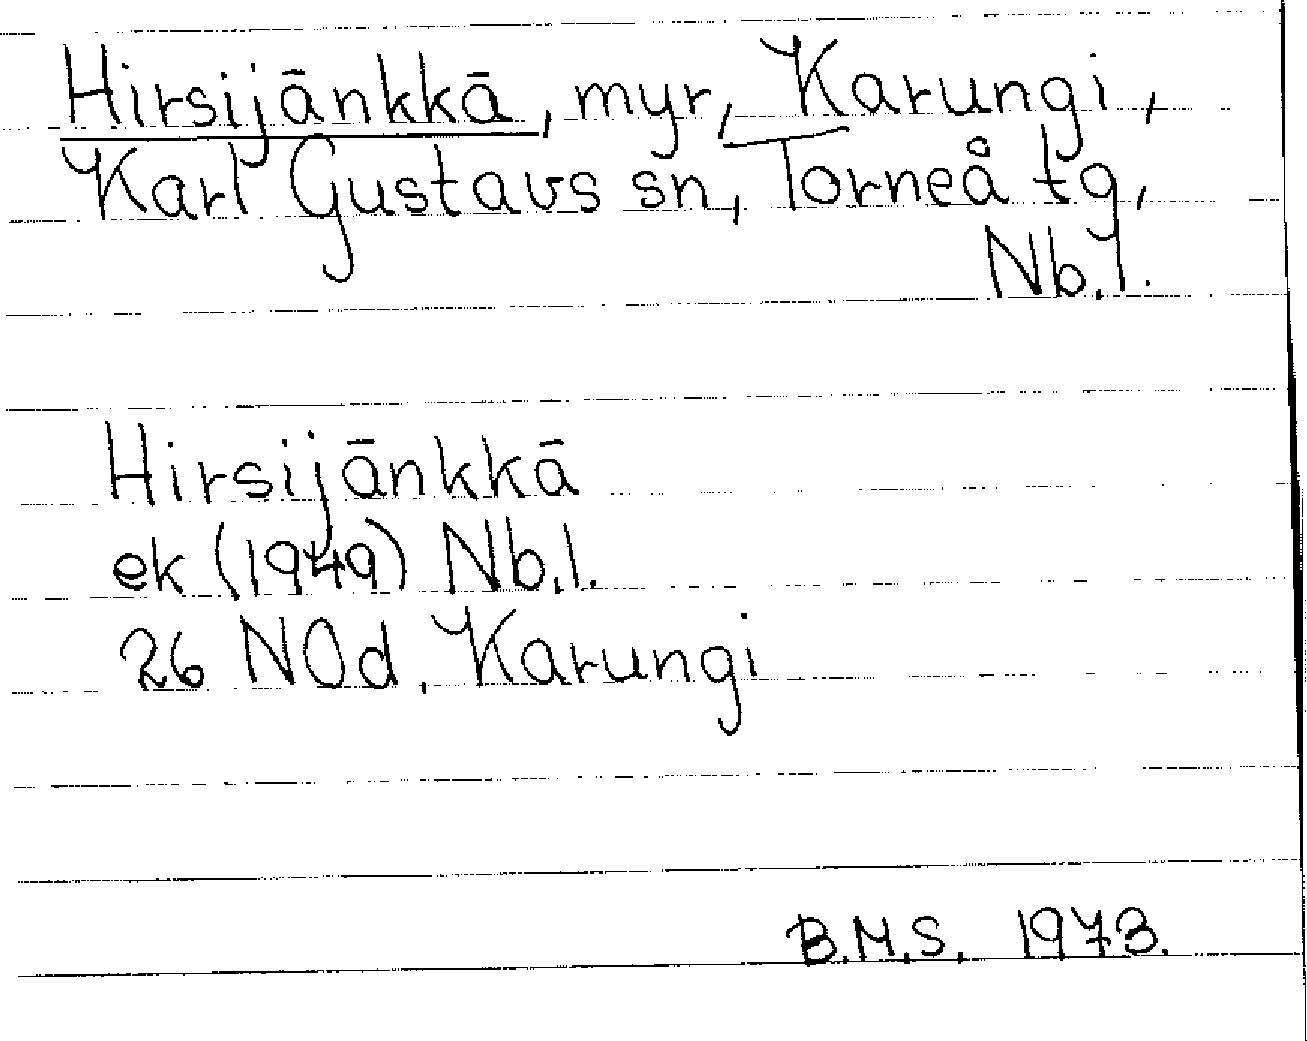 Hirsijänkkä, myr, Karungi,
Karl Gustavs sn, Torneå tg,
Nb.l.
Hirsijänkkä
ek (1949) Nb.l.
26 NOd, Karungi
B.M.S. 1973.